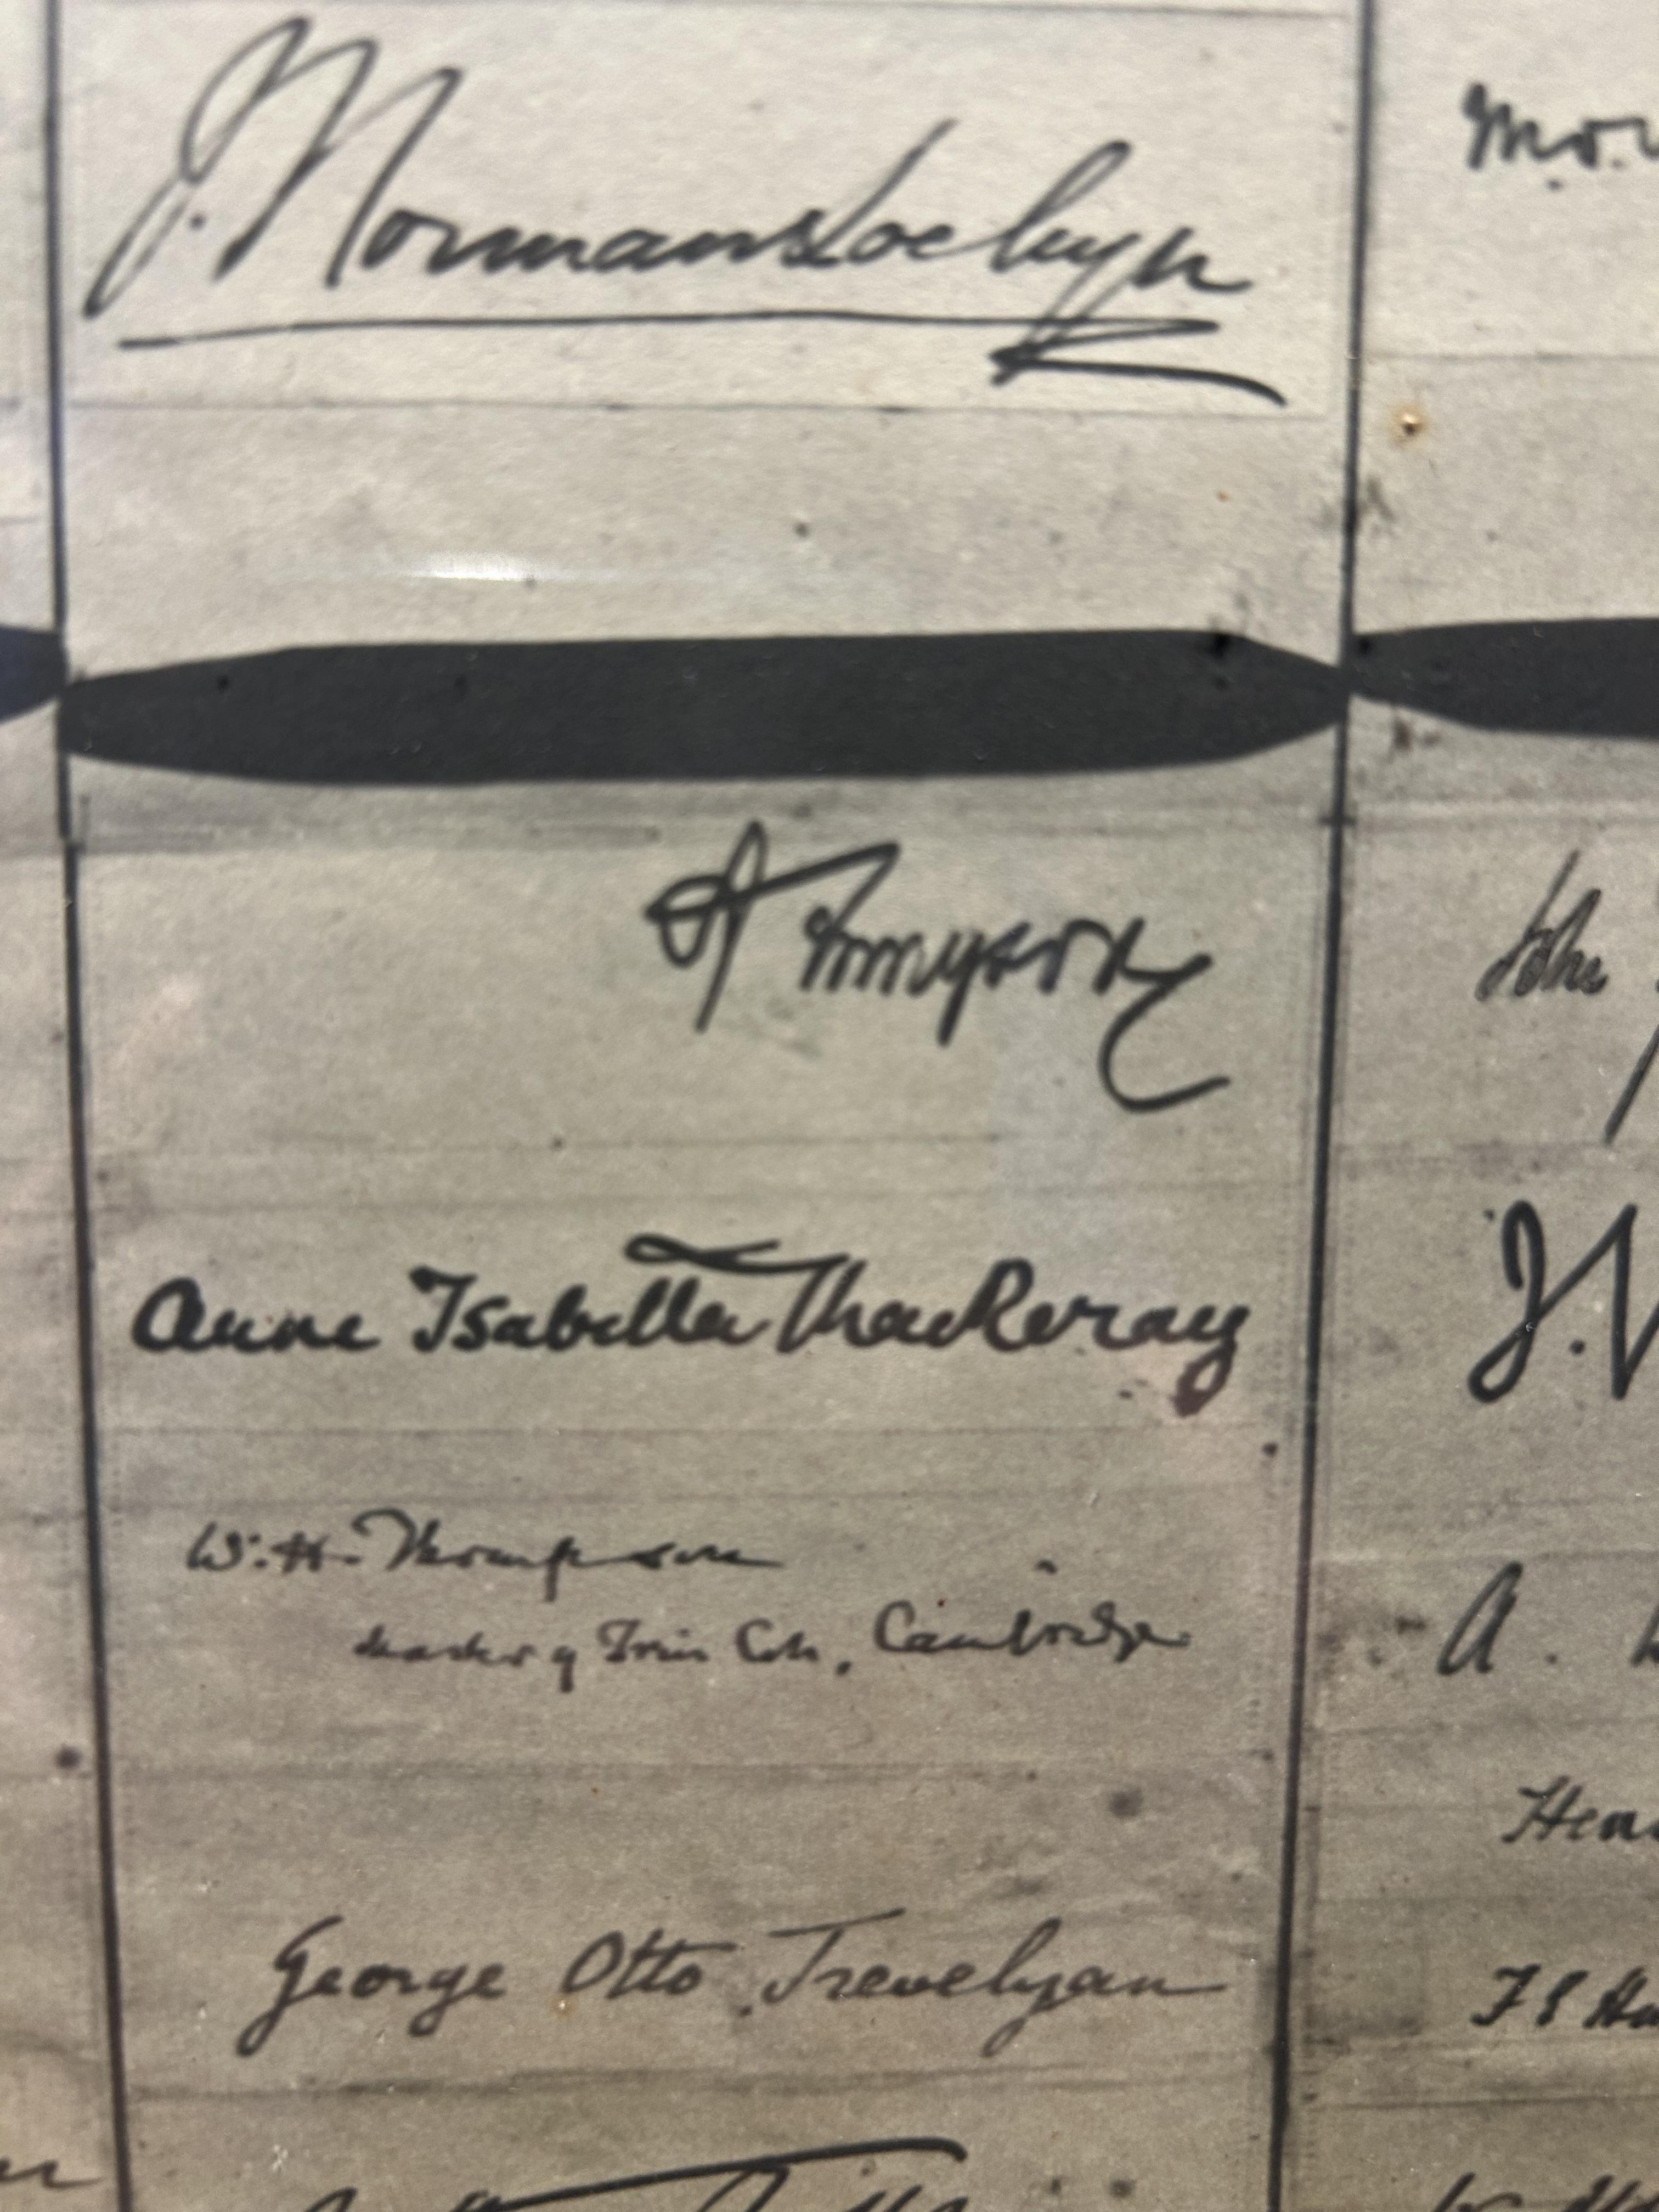 J. Norman Lockyer
A Tennyson
John
Anne Isabella Thackeray
J.
W. H. Thompson
A.
Master of Trin Coll, Cambridge
George Otto Trevelyan